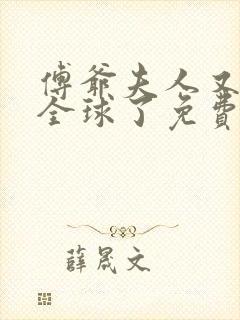 傅爺夫人又
全球了免費
薛晟文